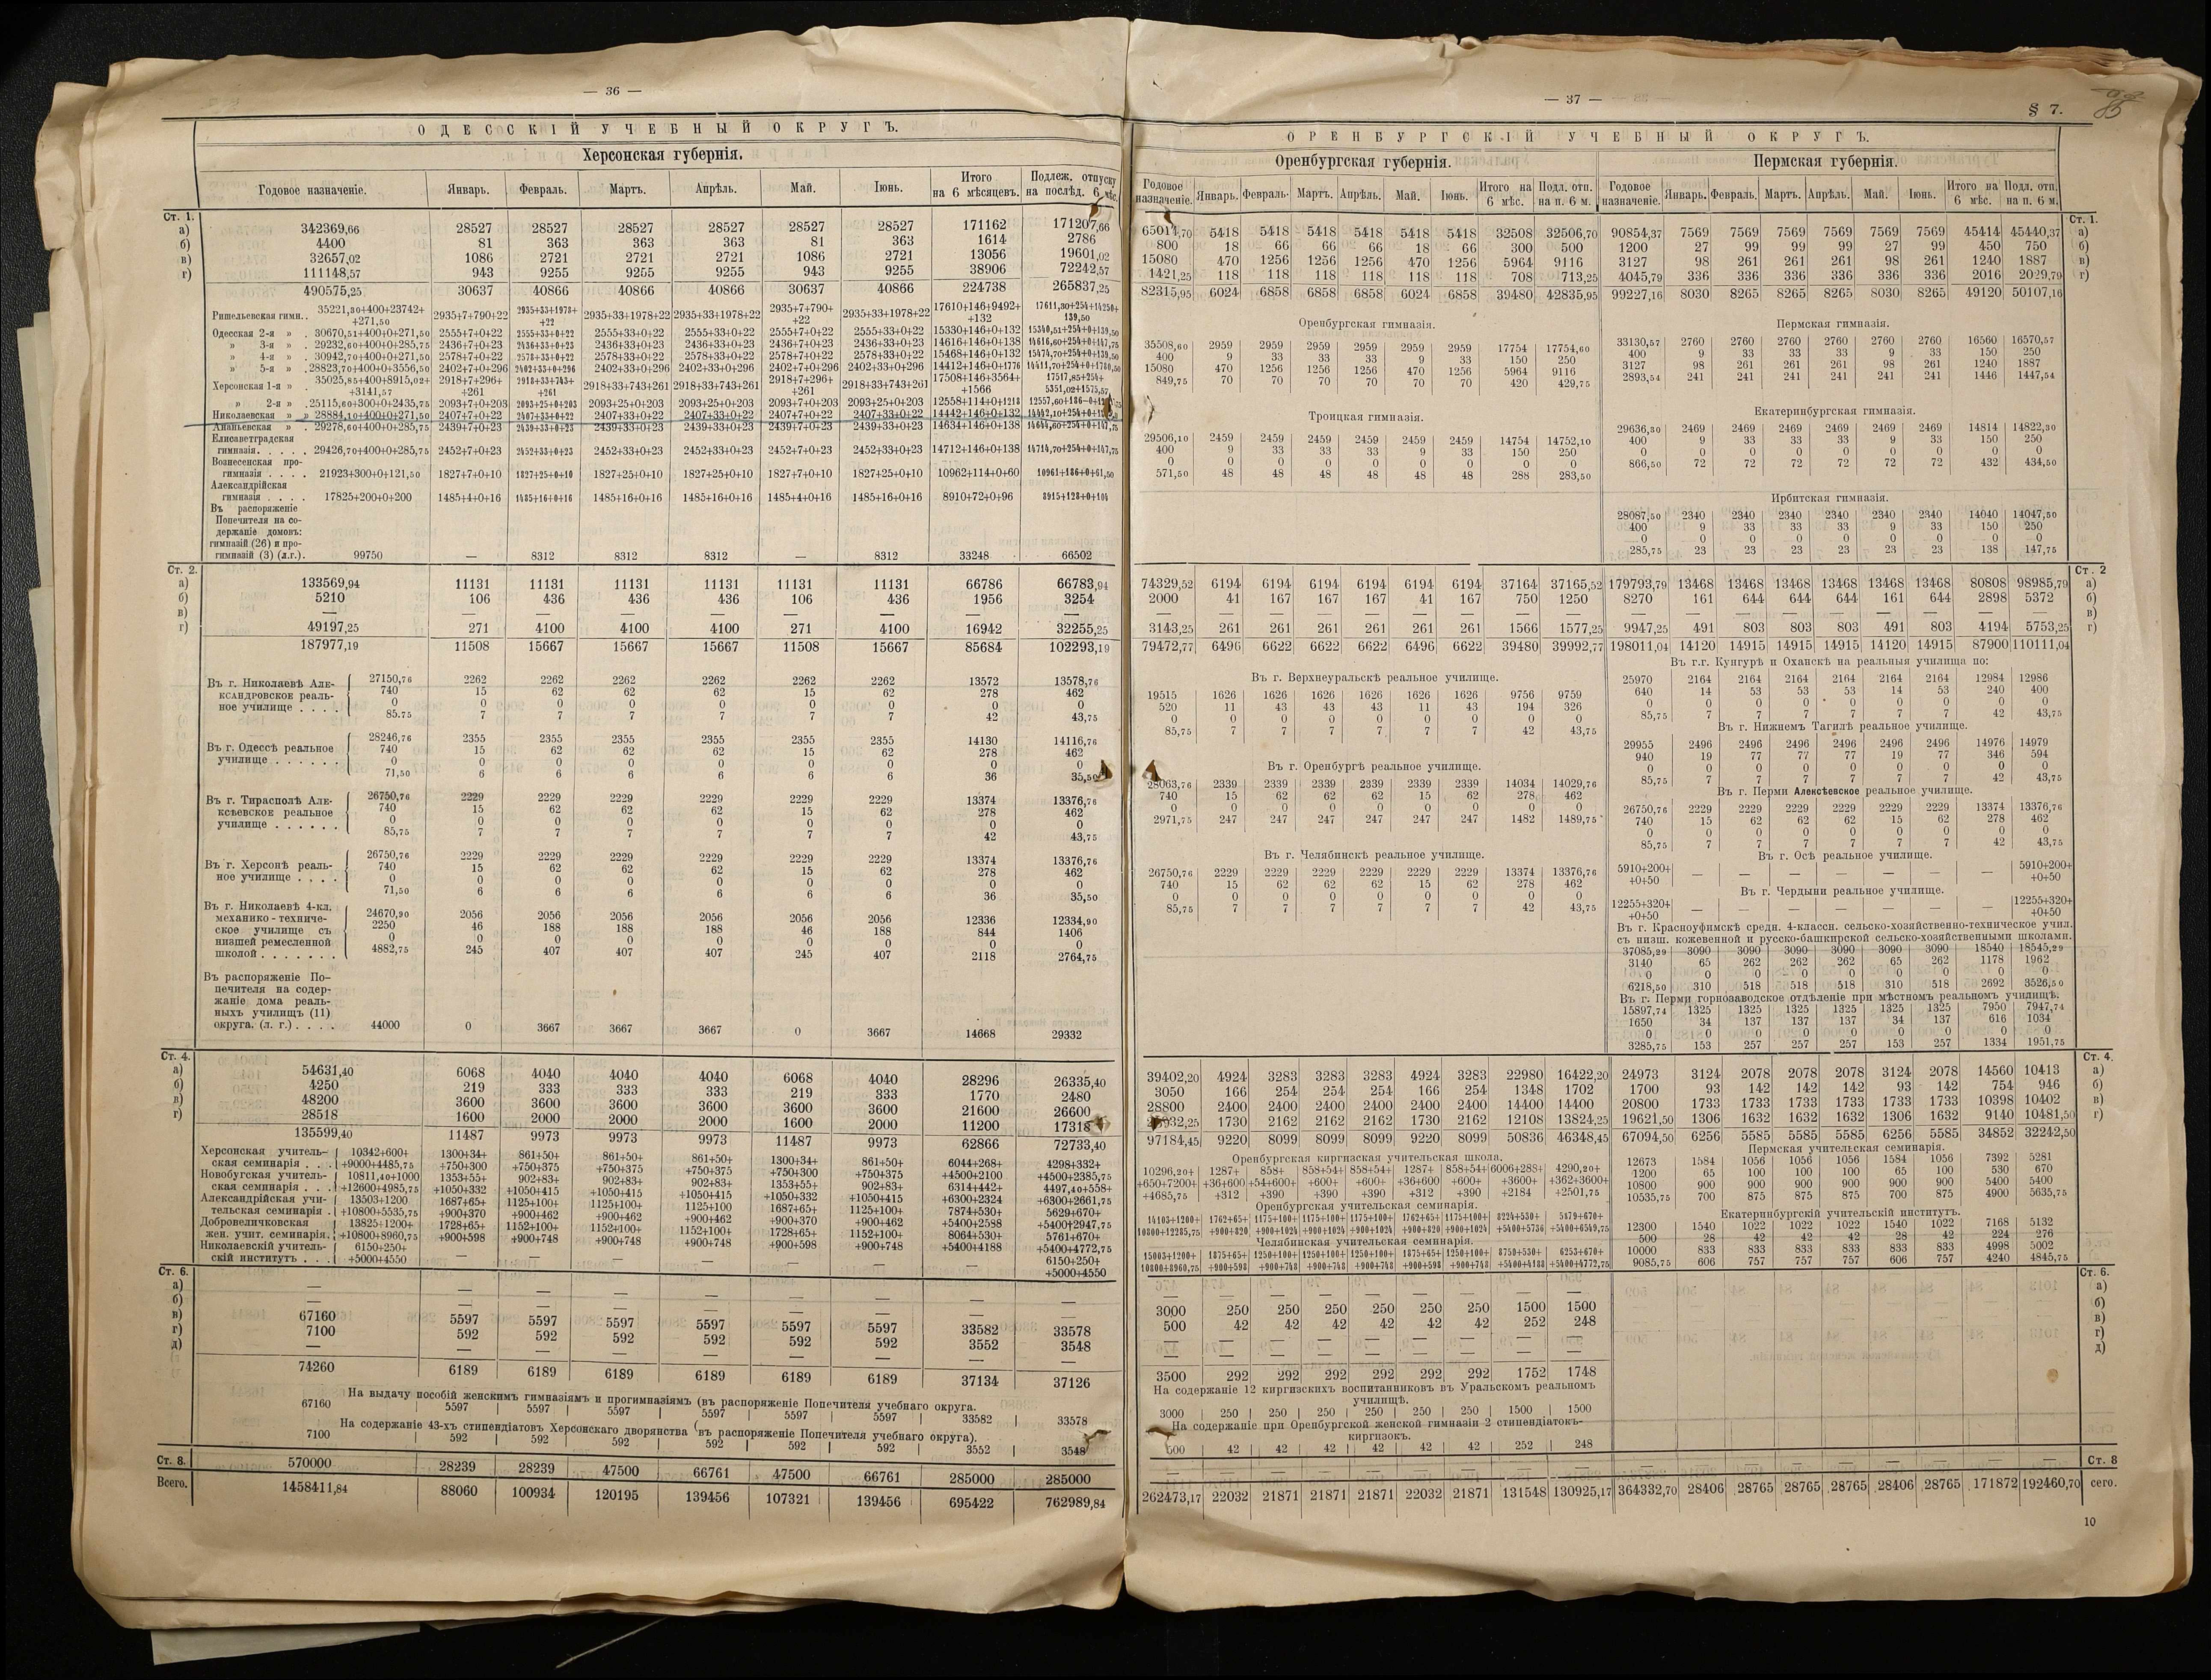 — 36 —
ОДЕССКІЙ УЧЕБНЫЙ ОКРУГЪ.
Херсонская губернія.
Годовое назначеніе. Январь. Февраль. Мартъ. Апрѣль. Май. Іюнь. Итого на 6 мѣсяцевъ. Подлеж. отпуску на послѣд. 6 мѣс.
Ст. 1.
а) 342369,66 28527 28527 28527 28527 28527 28527 171162 171207,66
б) 4400 81 363 363 363 81 363 1614 2786
в) 32657,02 1086 2721 2721 2721 1086 2721 13056 19601,02
г) 111148,57 943 9255 9255 9255 943 9255 38906 72242,57
490575,25 30637 40866 40866 40866 30637 40866 224738 265837,25
Ришельевская гимн.. 35221,30+400+23742+ +271,50 2935+7+790+22 2935+33+1978+ +22 2935+33+1978+22 2935+33+1978+22 2935+7+790+ +22 2935+33+1978+22 17610+146+9492+ +132 17611,30+254+14250+ 139,50
Одесская 2-я » . 30670,51+400+0+271,50 2555+7+0+22 2555+33+0+22 2555+33+0+22 2555+33+0+22 2555+7+0+22 2555+33+0+22 15330+146+0+132 15340,51+254+0+139,50
» 3-я » . 29232,60+400+0+285,75 2436+7+0+23 2436+33+0+23 2436+33+0+23 2436+33+0+23 2436+7+0+23 2436+33+0+23 14616+146+0+138 14616,60+254+0+147,75
» 4-я » . 30942,70+400+0+271,50 2578+7+0+22 2578+33+0+22 2578+33+0+22 2578+33+0+22 2578+7+0+22 2578+33+0+22 15468+146+0+132 15474,70+254+0+139,50
» 5-я » . 28823,70+400+0+3556,50 2402+7+0+296 2402+33+0+296 2402+33+0+296 2402+33+0+296 2402+7+0+296 2402+33+0+296 14412+146+0+1776 14411,70+254+0+1780,50
Херсонская 1-я » . 35025,85+400+8915,02+ +3141,57 2918+7+296+ +261 2918+33+743+ +261 2918+33+743+261 2918+33+743+261 2918+7+296+ +261 2918+33+743+261 17508+146+3564+ +1566 17517,85+254+ 5351,02+1575,57
» 2-я » . 25115,60+300+0+2435,75 2093+7+0+203 2093+25+0+203 2093+25+0+203 2093+25+0+203 2093+7+0+203 2093+25+0+203 12558+114+0+1218
Николаевская » » 28884,10+400+0+271,50 2407+7+0+22 2407+33+0+22 2407+33+0+22 2407+33+0+22 2407+7+0+22 2407+33+0+22 14442+146+0+132
Ананьевская » . 29278,60+400+0+285,75 2439+7+0+23 2439+33+0+23 2439+33+0+23 2439+33+0+23 2439+7+0+23 2439+33+0+23 14634+146+0+138 14644,60+254+0+147,75
Елисаветградская
гимназія. . . . . 29426,70+400+0+285,75 2452+7+0+23 2452+33+0+23 2452+33+0+23 2452+33+0+23 2452+7+0+23 2452+33+0+23 14712+146+0+138 14714,70+254+0+147,75
Вознесенская про-
гимназія . . . . 21923+300+0+121,50 1827+7+0+10 1827+25+0+10 1827+25+0+10 1827+25+0+10 1827+7+0+10 1827+25+0+10 10962+114+0+60 10961+186+0+61,50
Александрійская
гимназія . . . . 17825+200+0+200 1485+4+0+16 1485+16+0+16 1485+16+0+16 1485+16+0+16 1485+4+0+16 1485+16+0+16 8910+72+0+96 8915+128+0+104
Въ распоряженіе
Попечителя на со-
держаніе домовъ:
гимназій (26) и про-
гимназій (3) (л.г.). 99750 — 8312 8312 8312 — 8312 33248 66502
Ст. 2.
а) 133569,94 11131 11131 11131 11131 11131 11131 66786 66783,94
б) 5210 106 436 436 436 106 436 1956 3254
в) — — — — — — — — —
г) 49197,25 271 4100 4100 4100 271 4100 16942 32255,25
187977,19 11508 15667 15667 15667 11508 15667 85684 102293,19
Въ г. Николаевѣ Але- 27150,76 2262 2262 2262 2262 2262 2262 13572 13578,76
ксандровское реаль- 740 15 62 62 62 15 62 278 462
ное училище . . . . 0 0 0 0 0 0 0 0 0
85.75 7 7 7 7 7 7 42 43,75
Въ г. Одессѣ реальное 28246,76 2355 2355 2355 2355 2355 2355 14130 14116,76
училище . . . . . . 740 15 62 62 62 15 62 278 462
0 0 0 0 0 0 0 0 0
71,50 6 6 6 6 6 6 36 35,50
Въ г. Тирасполѣ Але- 26750,76 2229 2229 2229 2229 2229 2229 13374 13376,76
ксѣевское реальное 740 15 62 62 62 15 62 278 462
училище . . . . . . 0 0 0 0 0 0 0 0 0
85,75 7 7 7 7 7 7 42 43,75
Въ г. Херсонѣ реаль- 26750,76 2229 2229 2229 2229 2229 2229 13374 13376,76
ное училище . . . . 740 15 62 62 62 15 62 278 462
0 0 0 0 0 0 0 0 0
71,50 6 6 6 6 6 6 36 35,50
Въ г. Николаевѣ 4-кл.
механико-техниче- 24670,90 2056 2056 2056 2056 2056 2056 12336 12334,90
ское училище съ 2250 46 188 188 188 46 188 844 1406
низшей ремесленной 0 0 0 0 0 0 0 0 0
школой . . . . . . . 4882,75 245 407 407 407 245 407 2118 2764,75
Въ распоряженіе По-
печителя на содер-
жаніе дома реаль-
ныхъ училищъ (11)
округа. (л. г.) . . . . 44000 0 3667 3667 3667 0 3667 14668 29332
Ст. 4.
а) 54631,40 6068 4040 4040 4040 6068 4040 28296 26335,40
б) 4250 219 333 333 333 219 333 1770 2480
в) 48200 3600 3600 3600 3600 3600 3600 21600 26600
г) 28518 1600 2000 2000 2000 1600 2000 11200 17318
135599,40 11487 9973 9973 9973 11487 9973 62866 72733,40
Херсонская учитель- 10342+600+ 1300+34+ 861+50+ 861+50+ 861+50+ 1300+34+ 861+50+ 6044+268+ 4298+332+
ская семинарія . . . +9000+4485,75 +750+300 +750+375 +750+375 +750+375 +750+300 +750+375 +4500+2100 +4500+2385,75
Новобугская учитель- 10811,40+1000 1353+55+ 902+83+ 902+83+ 902+83+ 1353+55+ 902+83+ 6314+442+ 4497,40+558+
ская семинарія . . . +12600+4985,75 +1050+332 +1050+415 +1050+415 +1050+415 +1050+332 +1050+415 +6300+2324 +6300+2661,75
Александрійская учи- 13503+1200 1687+65+ 1125+100+ 1125+100+ 1125+100 1687+65+ 1125+100+ 7874+530+ 5629+670+
тельская семинарія . +10800+5535,75 +900+370 +900+462 +900+462 +900+462 +900+370 +900+462 +5400+2588 +5400+2947,75
Добровеличковская 13825+1200+ 1728+65+ 1152+100+ 1152+100+ 1152+100+ 1728+65+ 1152+100+ 8064+530+ 5761+670+
жен. учит. семинарія. +10800+8960,75 +900+598 +900+748 +900+748 +900+748 +900+598 +900+748 +5400+4188 +5400+4772,75
Николаевскій учитель- 6150+250+ — — — — — — — 6150+250+
скій институтъ . . . +5000+4550 +5000+4550
Ст. 6.
а) — — — — — — — — —
б) — — — — — — — — —
в) 67160 5597 5597 5597 5597 5597 5597 33582 33578
г) 7100 592 592 592 592 592 592 3552 3548
д) — — — — — — — — —
74260 6189 6189 6189 6189 6189 6189 37134 37126
На выдачу пособій женскимъ гимназіямъ и прогимназіямъ (въ распоряженіе Попечителя учебнаго округа.
67160 5597 5597 5597 5597 5597 5597 33582 33578
На содержаніе 43-хъ стипендіатовъ Херсонскаго дворянства (въ распоряженіе Попечителя учебнаго округа).
7100 592 592 592 592 592 592 3552 3548
Ст. 8. 570000 28239 28239 47500 66761 47500 66761 285000 285000
Всего. 1458411,84 88060 100934 120195 139456 107321 139456 695422 762989,84
— 37 —
§ 7.
ОРЕНБУРГСКІЙ УЧЕБНЫЙ ОКРУГЪ.
Оренбургская губернія. Пермская губернія.
Годовое назначеніе. Январь. Февраль. Мартъ. Апрѣль. Май. Іюнь. Итого на 6 мѣс. Подл. отп. на п. 6 м. Годовое назначеніе. Январь. Февраль. Мартъ. Апрѣль. Май. Іюнь. Итого на 6 мѣс. Подл. отп. на п. 6 м.
Ст. 1.
65014,70 5418 5418 5418 5418 5418 5418 32508 32506,70 90854,37 7569 7569 7569 7569 7569 7569 45414 45440,37 а)
800 18 66 66 66 18 66 300 500 1200 27 99 99 99 27 99 450 750 б)
15080 470 1256 1256 1256 470 1256 5964 9116 3127 98 261 261 261 98 261 1240 1887 в)
1421,25 118 118 118 118 118 118 708 713,25 4045,79 336 336 336 336 336 336 2016 2029,79 г)
82315,95 6024 6858 6858 6858 6024 6858 39480 42835,95 99227,16 8030 8265 8265 8265 8030 8265 49120 50107,16
Оренбургская гимназія. Пермская гимназія.
35508,60 2959 2959 2959 2959 2959 2959 17754 17754,60 33130,57 2760 2760 2760 2760 2760 2760 16560 16570,57
400 9 33 33 33 9 33 150 250 400 9 33 33 33 9 33 150 250
15080 470 1256 1256 1256 470 1256 5964 9116 3127 98 261 261 261 98 261 1240 1887
849,75 70 70 70 70 70 70 420 429,75 2893,54 241 241 241 241 241 241 1446 1447,54
Троицкая гимназія. Екатеринбургская гимназія.
29506,10 2459 2459 2459 2459 2459 2459 14754 14752,10 29636,30 2469 2469 2469 2469 2469 2469 14814 14822,30
400 9 33 33 33 9 33 150 250 400 9 33 33 33 9 33 150 250
0 0 0 0 0 0 0 0 0 0 0 0 0 0 0 0 0 0
571,50 48 48 48 48 48 48 288 283,50 866,50 72 72 72 72 72 72 432 434,50
Ирбитская гимназія.
28087,50 2340 2340 2340 2340 2340 2340 14040 14047,50
400 9 33 33 33 9 33 150 250
0 0 0 0 0 0 0 0 0
285,75 23 23 23 23 23 23 138 147,75
Ст. 2
74329,52 6194 6194 6194 6194 6194 6194 37164 37165,52 179793,79 13468 13468 13468 13468 13468 13468 80808 98985,79 а)
2000 41 167 167 167 41 167 750 1250 8270 161 644 644 644 161 644 2898 5372 б)
— — — — — — — — — — — — — — — — — — в)
3143,25 261 261 261 261 261 261 1566 1577,25 9947,25 491 803 803 803 491 803 4194 5753,25 г)
79472,77 6496 6622 6622 6622 6496 6622 39480 39992,77 198011,04 14120 14915 14915 14915 14120 14915 87900 110111,04
Въ г. Верхнеуральскѣ реальное училище. Въ г.г. Кунгурѣ и Оханскѣ на реальныя училища по:
19515 1626 1626 1626 1626 1626 1626 9756 9759 25970 2164 2164 2164 2164 2164 2164 12984 12986
520 11 43 43 43 11 43 194 326 640 14 53 53 53 14 53 240 400
0 0 0 0 0 0 0 0 0 0 0 0 0 0 0 0 0 0
85,75 7 7 7 7 7 7 42 43,75 85,75 7 7 7 7 7 7 42 43,75
Въ г. Нижнемъ Тагилѣ реальное училище.
29955 2496 2496 2496 2496 2496 2496 14976 14979
940 19 77 77 77 19 77 346 594
0 0 0 0 0 0 0 0 0
85,75 7 7 7 7 7 7 42 43,75
Въ г. Оренбургѣ реальное училище. Въ г. Перми Алексѣевское реальное училище.
28063,76 2339 2339 2339 2339 2339 2339 14034 14029,76 26750,76 2229 2229 2229 2229 2229 2229 13374 13376,76
740 15 62 62 62 15 62 278 462 740 15 62 62 62 15 62 278 462
0 0 0 0 0 0 0 0 0 0 0 0 0 0 0 0 0 0
2971,75 247 247 247 247 247 247 1482 1489,75 85,75 7 7 7 7 7 7 42 43,75
Въ г. Челябинскѣ реальное училище. Въ г. Осѣ реальное училище.
26750,76 2229 2229 2229 2229 2229 2229 13374 13376,76 5910+200+ +0+50 — — — — — — — 5910+200+ +0+50
740 15 62 62 62 15 62 278 462 Въ г. Чердыни реальное училище.
0 0 0 0 0 0 0 0 0 12255+320+ +0+50 — — — — — — — 12255+320+ +0+50
85,75 7 7 7 7 7 7 42 43,75
Въ г. Красноуфимскѣ средн. 4-классн. сельско-хозяйственно-техническое учил.
съ низш. кожевенной и русско-башкирской сельско-хозяйственными школами.
37085,29 3090 3090 3090 3090 3090 3090 18540 18545,29
3140 65 262 262 262 65 262 1178 1962
0 0 0 0 0 0 0 0 0
6218,50 310 518 518 518 310 518 2692 3526,50
Въ г. Перми горнозаводское отдѣленіе при мѣстномъ реальномъ училищѣ.
15897,74 1325 1325 1325 1325 1325 1325 7950 7947,74
1650 34 137 137 137 34 137 616 1034
0 0 0 0 0 0 0 0 0
3285,75 153 257 257 257 153 257 1334 1951,75
Ст. 4.
39402,20 4924 3283 3283 3283 4924 3283 22980 16422,20 24973 3124 2078 2078 2078 3124 2078 14560 10413 а)
3050 166 254 254 254 166 254 1348 1702 1700 93 142 142 142 93 142 754 946 б)
28800 2400 2400 2400 2400 2400 2400 14400 14400 20800 1733 1733 1733 1733 1733 1733 10398 10402 в)
1730 2162 2162 2162 1730 2162 12108 13824,25 19621,50 1306 1632 1632 1632 1306 1632 9140 10481,50 г)
97184,45 9220 8099 8099 8099 9220 8099 50836 46348,45 67094,50 6256 5585 5585 5585 6256 5585 34852 32242,50
Оренбургская киргизская учительская школа. Пермская учительская семинарія.
10296,20+ 1287+ 858+ 858+54+ 858+54+ 1287+ 858+54+ 6006+288+ 4290,20+ 12673 1584 1056 1056 1056 1584 1056 7392 5281
+650+7200+ +36+600 +54+600+ +600+ +600+ +36+600 +600+ +3600+ +362+3600+ 1200 65 100 100 100 65 100 530 670
+4685,75 +312 +390 +390 +390 +312 +390 +2184 +2501,75 10800 900 900 900 900 900 900 5400 5400
10535,75 700 875 875 875 700 875 4900 5635,75
Оренбургская учительская семинарія. Екатеринбургскій учительскій институтъ.
14103+1200+ 1762+65+ 1175+100+ 1175+100+ 1175+100+ 1762+65+ 1175+100+ 8224+530+ 5179+670+ 12300 1540 1022 1022 1022 1540 1022 7168 5132
10800+12285,75 +900+820 +900+1024 +900+1024 +900+1024 +900+820 +900+1024 +5400+5736 +5400+6549,75 500 28 42 42 42 28 42 224 276
Челябинская учительская семинарія.
15003+1200+ 1875+65+ 1250+100+ 1250+100+ 1250+100+ 1875+65+ 1250+100+ 8750+530+ 6253+670+ 10000 833 833 833 833 833 833 4998 5002
10800+8960,75 +900+598 +900+748 +900+748 +900+748 +900+598 +900+748 +5400+4188 +5400+4772,75 9085,75 606 757 757 757 606 757 4240 4845,75
Ст. 6.
— — — — — — — — — а)
3000 250 250 250 250 250 250 1500 1500 б)
500 42 42 42 42 42 42 252 248 в)
— — — — — — — — — г)
— — — — — — — — — д)
3500 292 292 292 292 292 292 1752 1748
На содержаніе 12 киргизскихъ воспитанниковъ въ Уральскомъ реальномъ
училищѣ.
3000 250 250 250 250 250 250 1500 1500
На содержаніе при Оренбургской женской гимназіи 2 стипендіатокъ-
киргизокъ.
500 42 42 42 42 42 42 252 248
— — — — — — — — — — — — — — — — — — Ст. 8
262473,17 22032 21871 21871 21871 22032 21871 131548 130925,17 364332,70 28406 28765 28765 28765 28406 28765 171872 192460,70 сего.
10